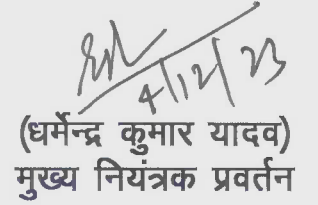 4/12/23
(धर्मेन्द्र कुमार यादव)
मुख्य नियंत्रक प्रवर्तन